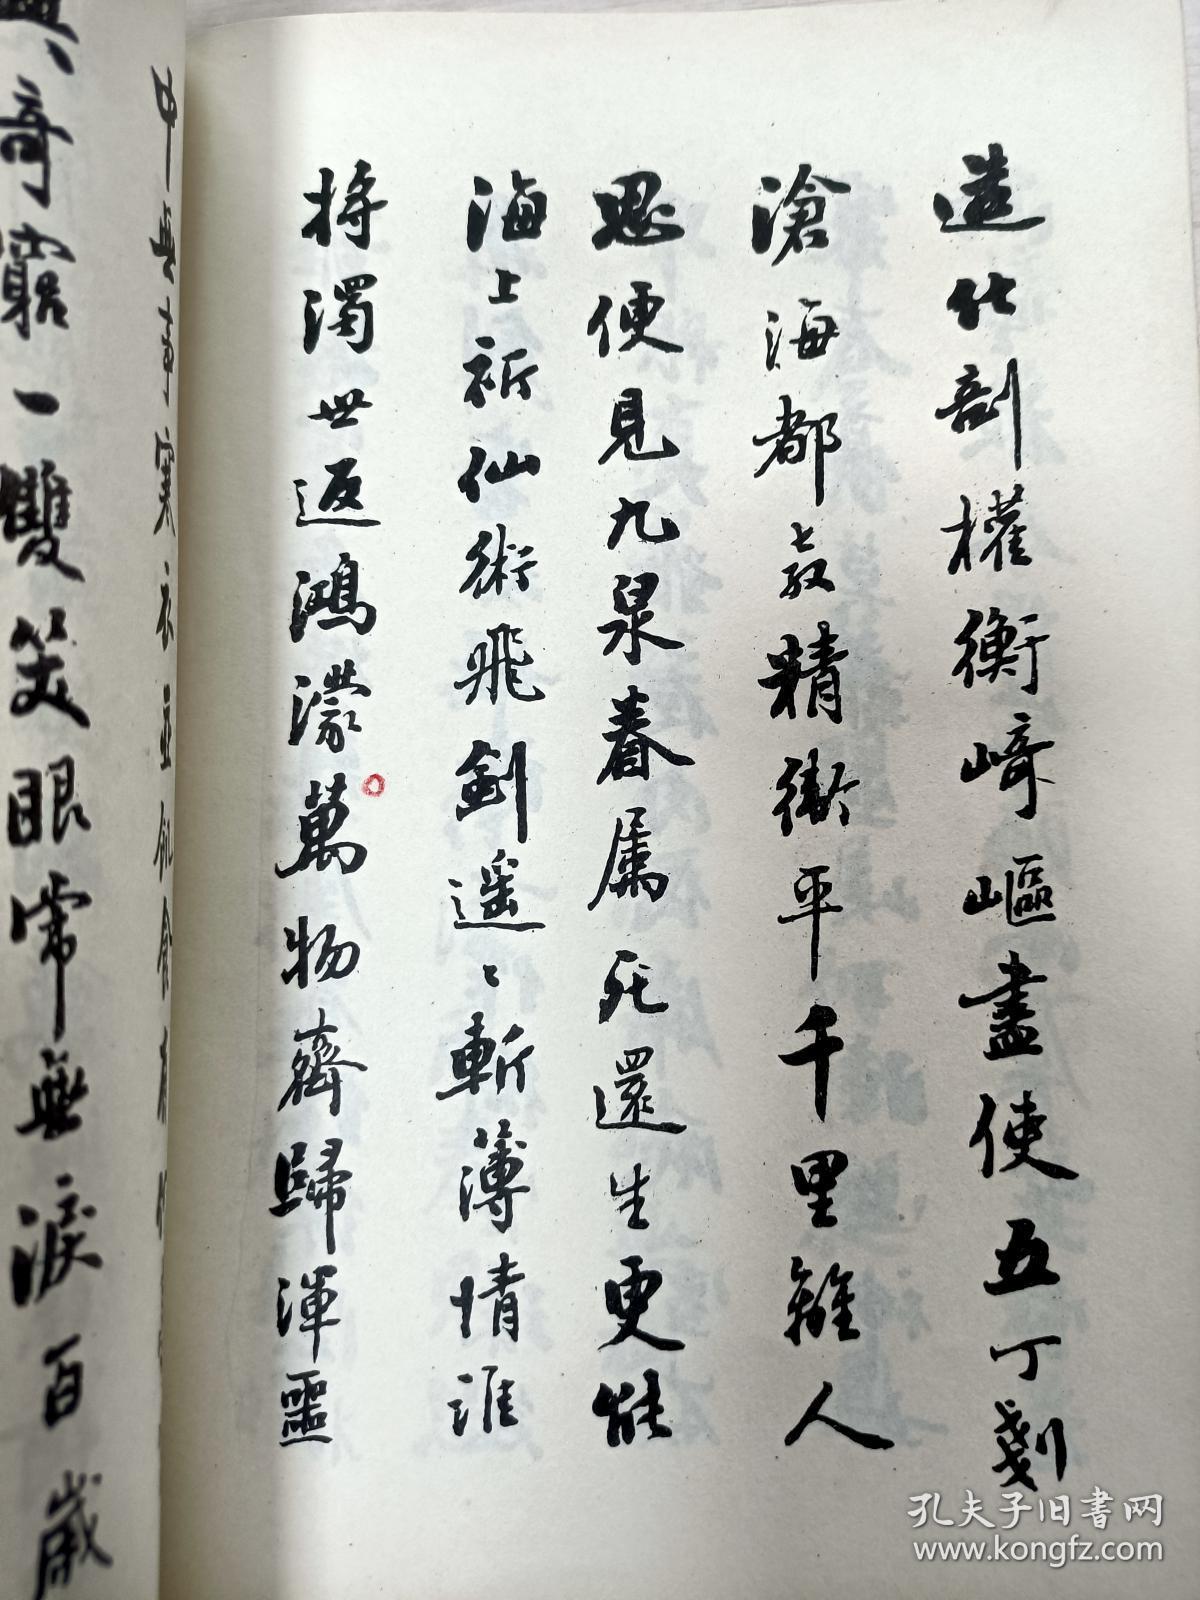 造化剖權衡崎嶇盡使五丁剗
滄海都教精衛平千里離人
思便見九泉眷属死還生更能
海上祈仙術飛劍遥〻斬薄情誰
將濁世返鴻濛萬物齊歸渾噩
中無事寒衣並飢食
奇窮一雙笑眼常無淚百歲
孔夫子旧书网
www.kongfz.com